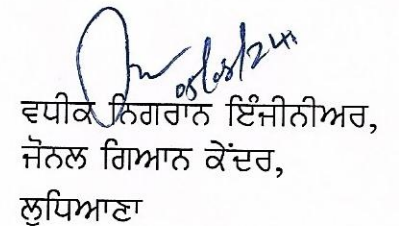 05/08/24
ਵਧੀਕ ਨਿਗਰਾਨ ਇੰਜੀਨੀਅਰ,
ਜੋਨਲ ਗਿਆਨ ਕੇਂਦਰ,
ਲੁਧਿਆਣਾ